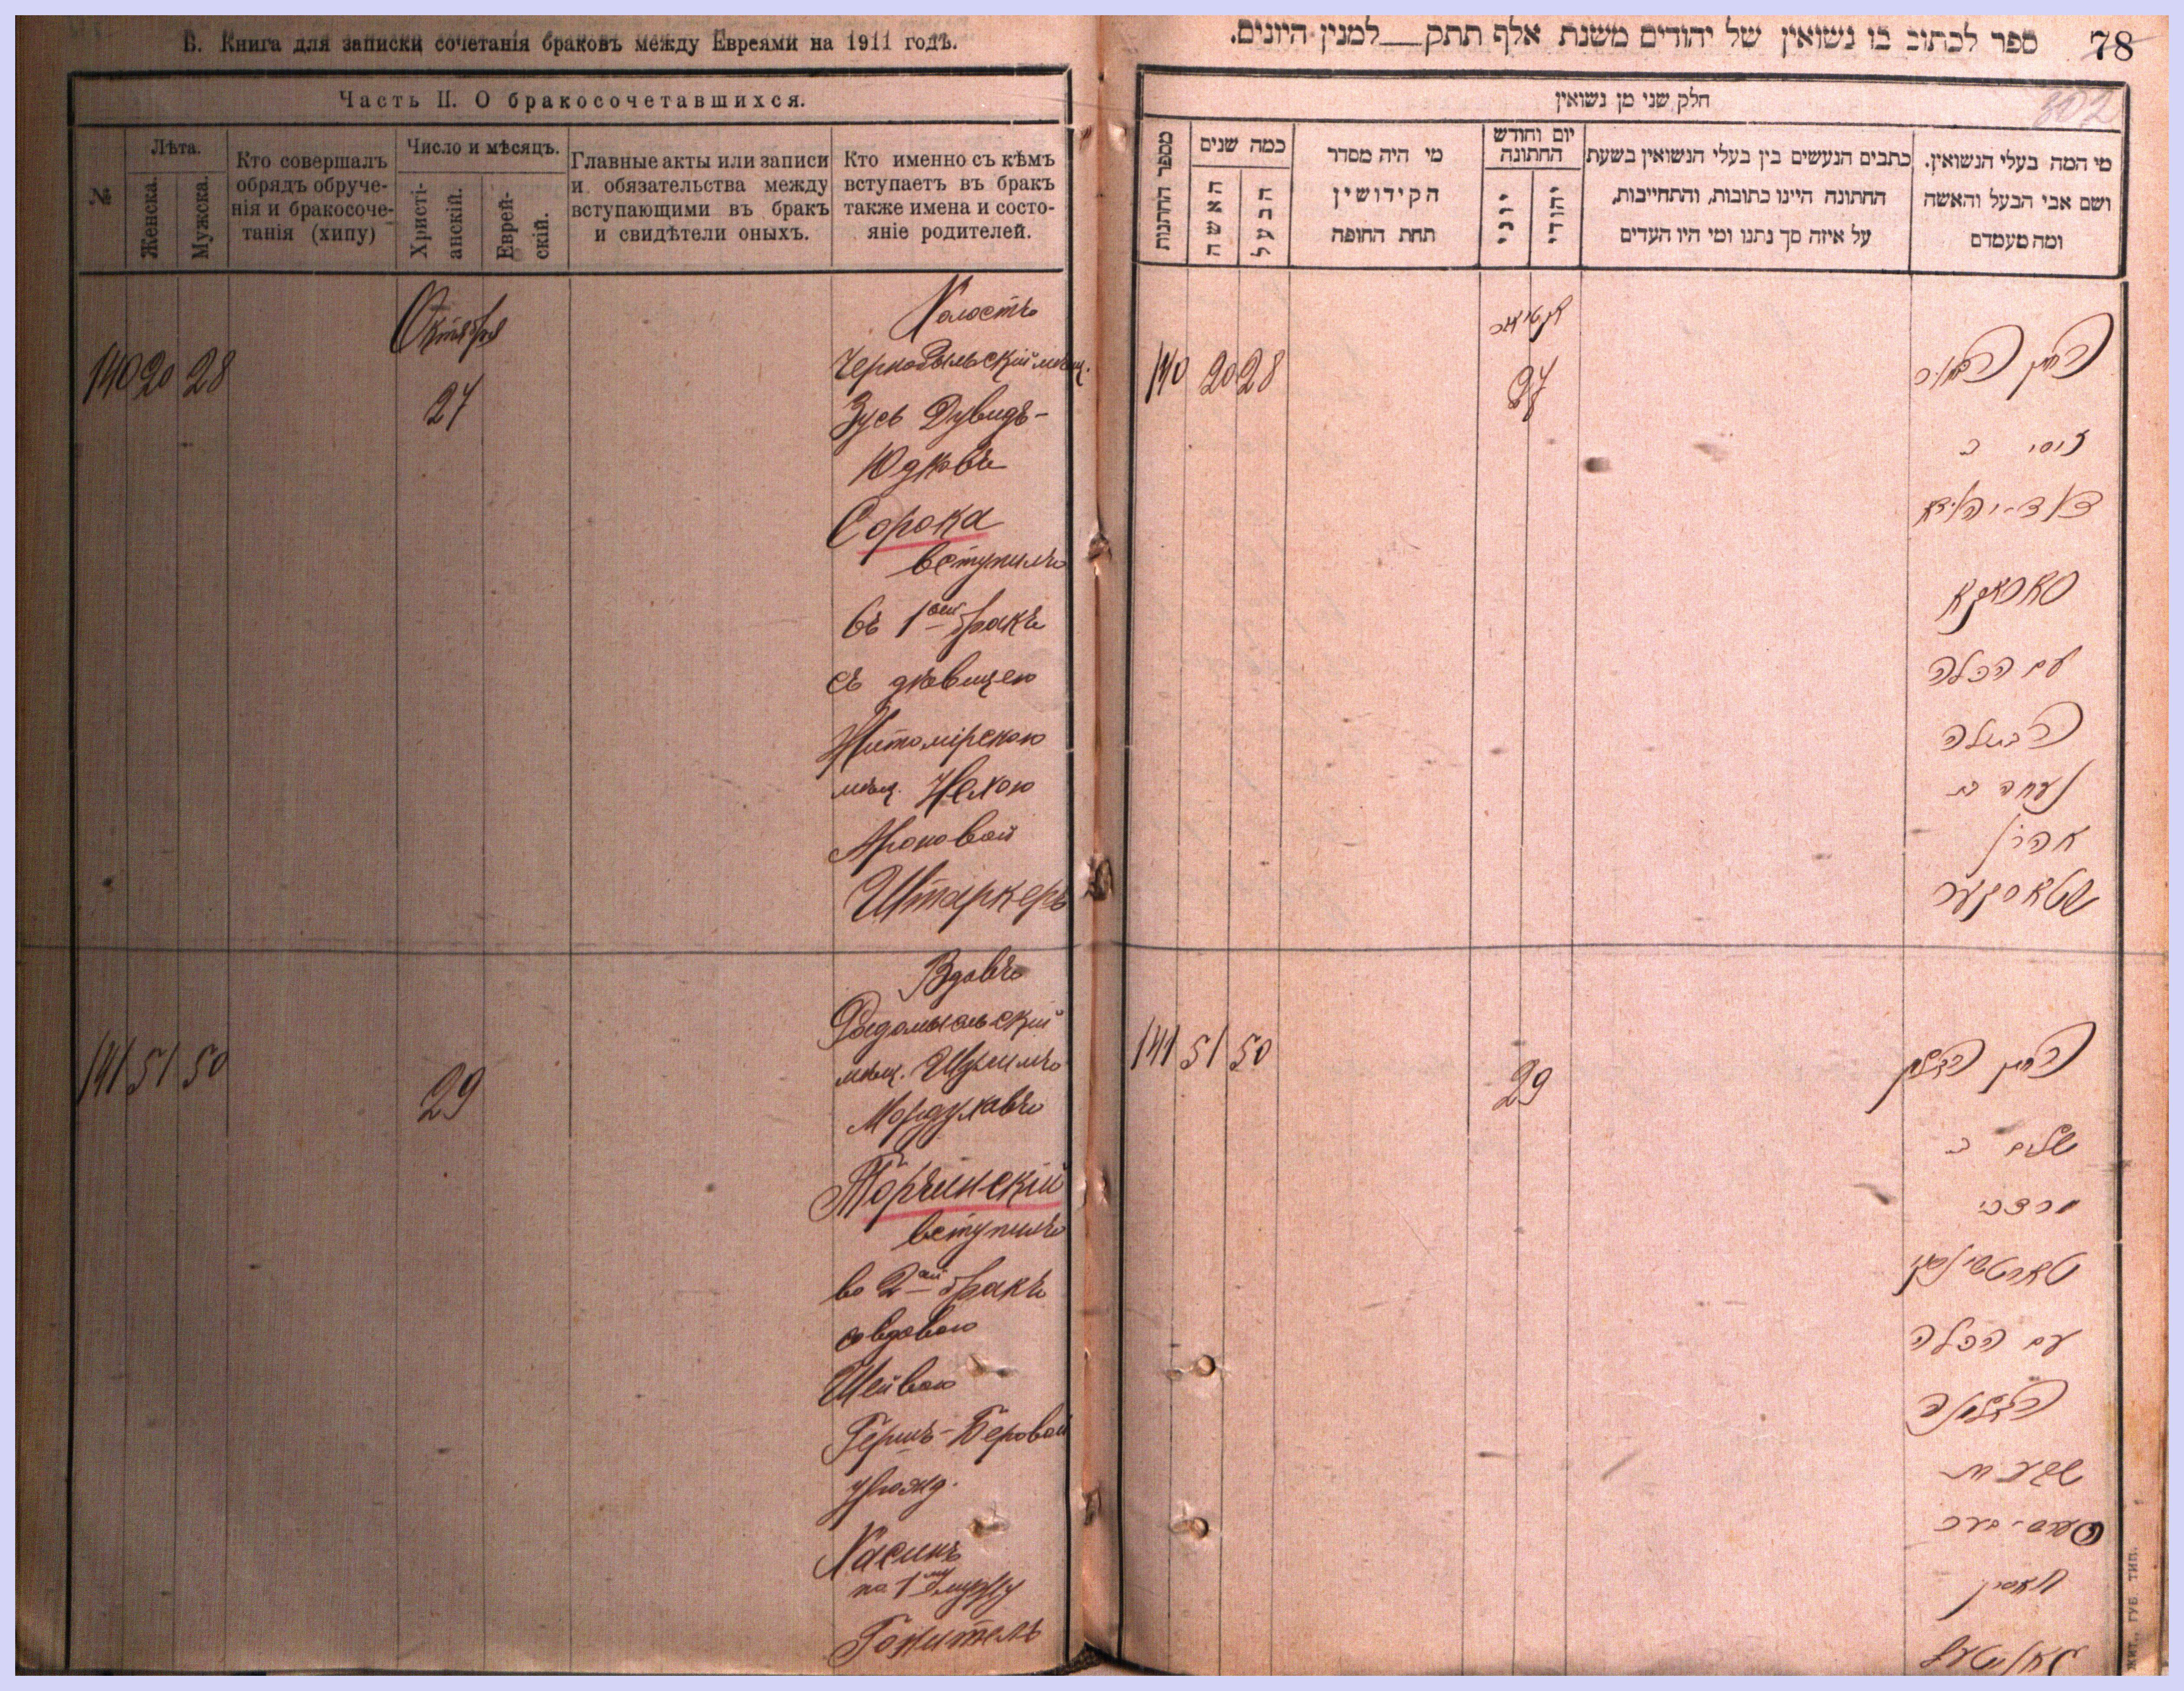 В. Книга для записки сочетанія браковъ между Евреями на 1911 годъ.
Часть II. О бракосочетавшихся.
№
Лѣта.
Женска.
Мужска.
Кто совершалъ
обрядъ обруче-
нія и бракосоче-
танія (хипу)
Число и мѣсяцъ.
Христі-
анскій.
Еврей-
скій.
Главные акты или записи
и обязательства между
вступающими въ бракъ
и свидѣтели оныхъ.
Кто именно съ кѣмъ
вступаетъ въ бракъ
также имена и состо-
яніе родителей.
140 20 28
Октября
27
Холостъ
Чернобыльскій мѣщ.
Зусь Дувидъ-
Юдковъ
Сорока
вступилъ
въ 1ый бракъ
съ дѣвицею
Житомірскою
мѣщ. Нехою
Ароновой
Штаркеръ
141 51 50
29
Вдовъ
Радомысльскій
мѣщ.
Мордуховъ
Торчинскій
вступилъ
во 2ой бракъ
со вдовою
Шейвою
Гершъ-Беровой
урожд.
Хасинъ
по 1му мужу
78
302
ספר לכתוב בו נשואין של יהודים משנת אלף תתק__למנין היונים.
חלק שני מן נשואין
מספר החתונות
כמה שנים
האשה
הבעל
מי היה מסדר
הקידושין
תחת החופה
יום וחודש
החתונה
יוני
יהודי
כתבים הנעשים בין בעלי הנשואין בשעת
החתונה היינו כתובות, והתחייבות,
על איזה סך נתנו ומי היו העדים
מי המה בעלי הנשואין.
ושם אבי הבעל והאשה
ומה מעמדם
140 20 28
27
החתן הבחור
זוסי ב
דוד-יהודא
סאראקא
עם הכלה
הבתולה
נעחה בת
אהרן
שטארקער
141 51 50
29
החתן האלמן
שלום ב
מרדכי
טארטשינסקי
עם הכלה
האלמנה
שבע בת
הערש-בער
חאסין
жит., губ. тип.